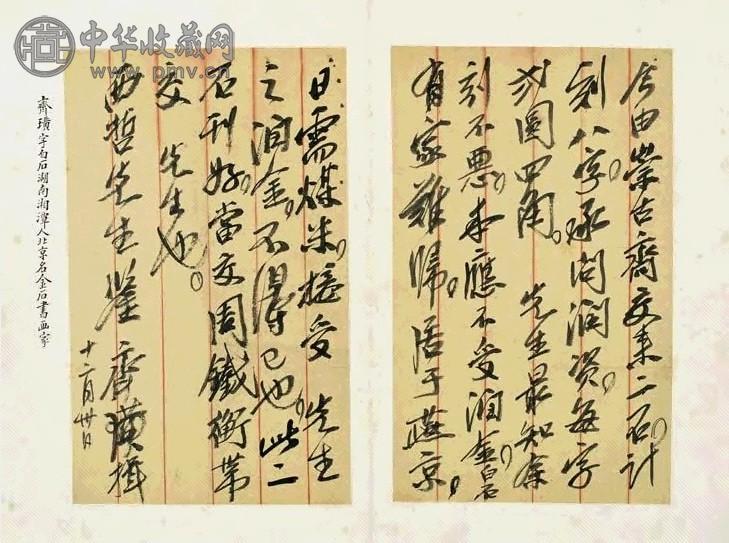 中华收藏网
www.pmv.cn
今由崇古齋交来二石，计
刻八字。承问润资，每字
圆四角。先生最知余
刻不悪。本應不受润金，白石
有家難歸，居于燕京，
日需煤米，接受 先生
之润金，不得已也。此二
石刊好，當交周鐵衡带
交 先生也。
西哲先生鉴 齊璜揖
十二月卅日
齊璜字白石湖南湘潭人北京名金石書画家